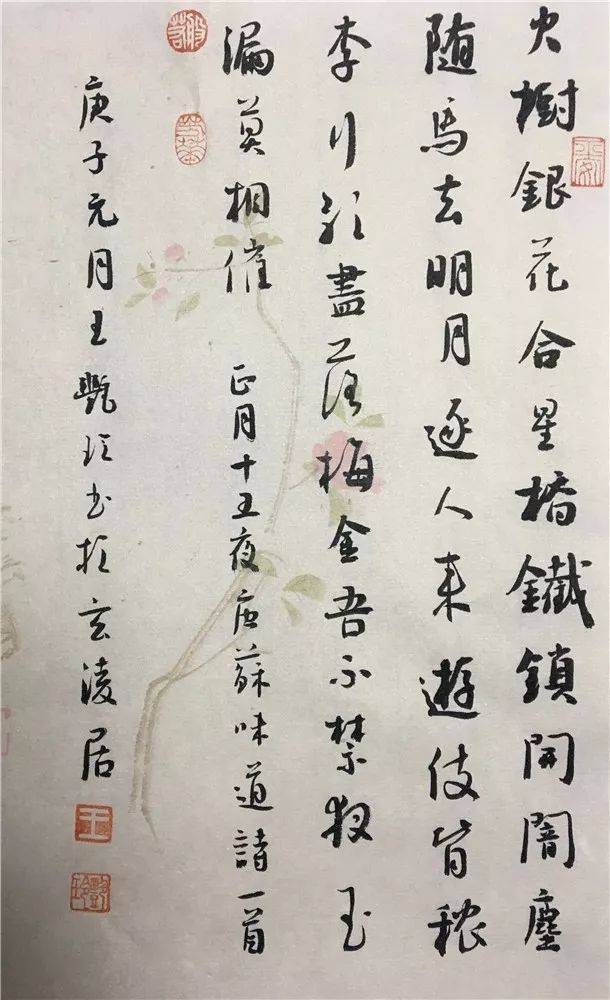 火樹銀花合星橋鐵鎖開闇塵
随馬去明月逐人来遊伎皆穠
李行歌盡落梅金吾不禁夜玉
漏莫相催 正月十五夜唐蘇味道詩一首
庚子元月王艷玲书於玄凌居
王
艷玲
般若